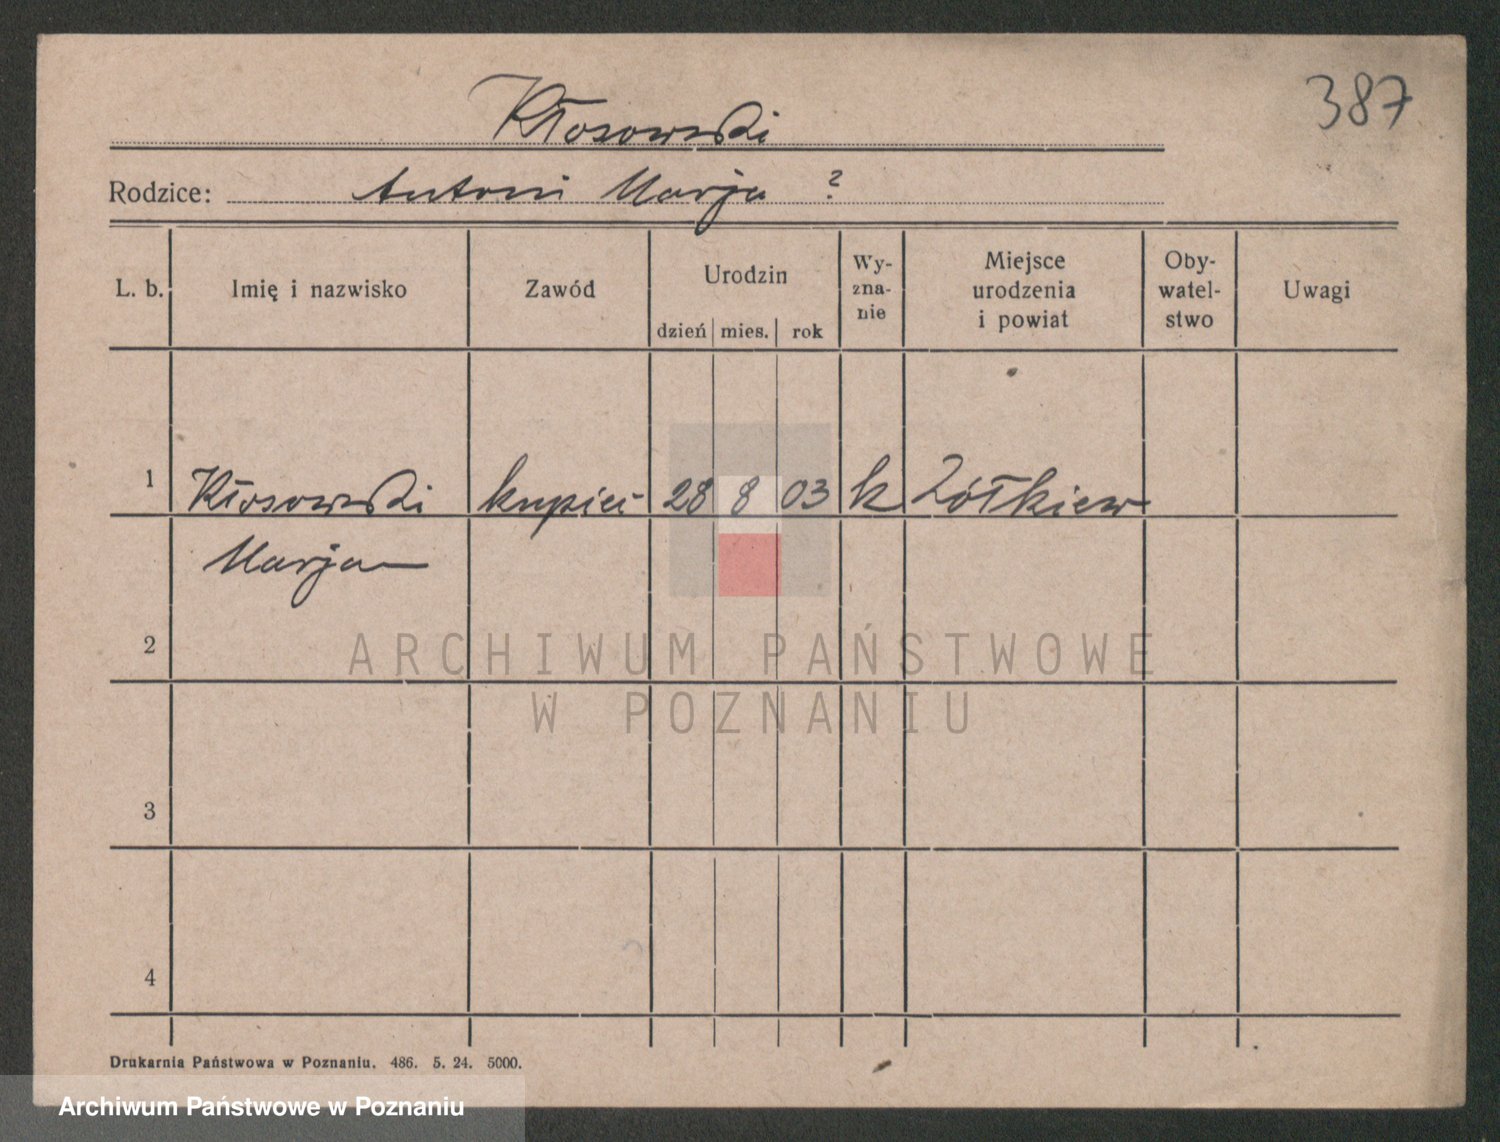 387
Kłosowski
Rodzice: Antoni Marja ?
L. b. Imię i nazwisko Zawód Urodzin dzień mies. rok Wy-zna-nie Miejsce urodzenia i powiat Oby-watel-stwo Uwagi
1 Kłosowski kupiec 28 8 03 k Żółkiew
Marjan
2
ARCHIWUM PAŃSTWOWE
W POZNANIU
3
4
Drukarnia Państwowa w Poznaniu. 486. 5. 24. 5000.
Archiwum Państwowe w Poznaniu